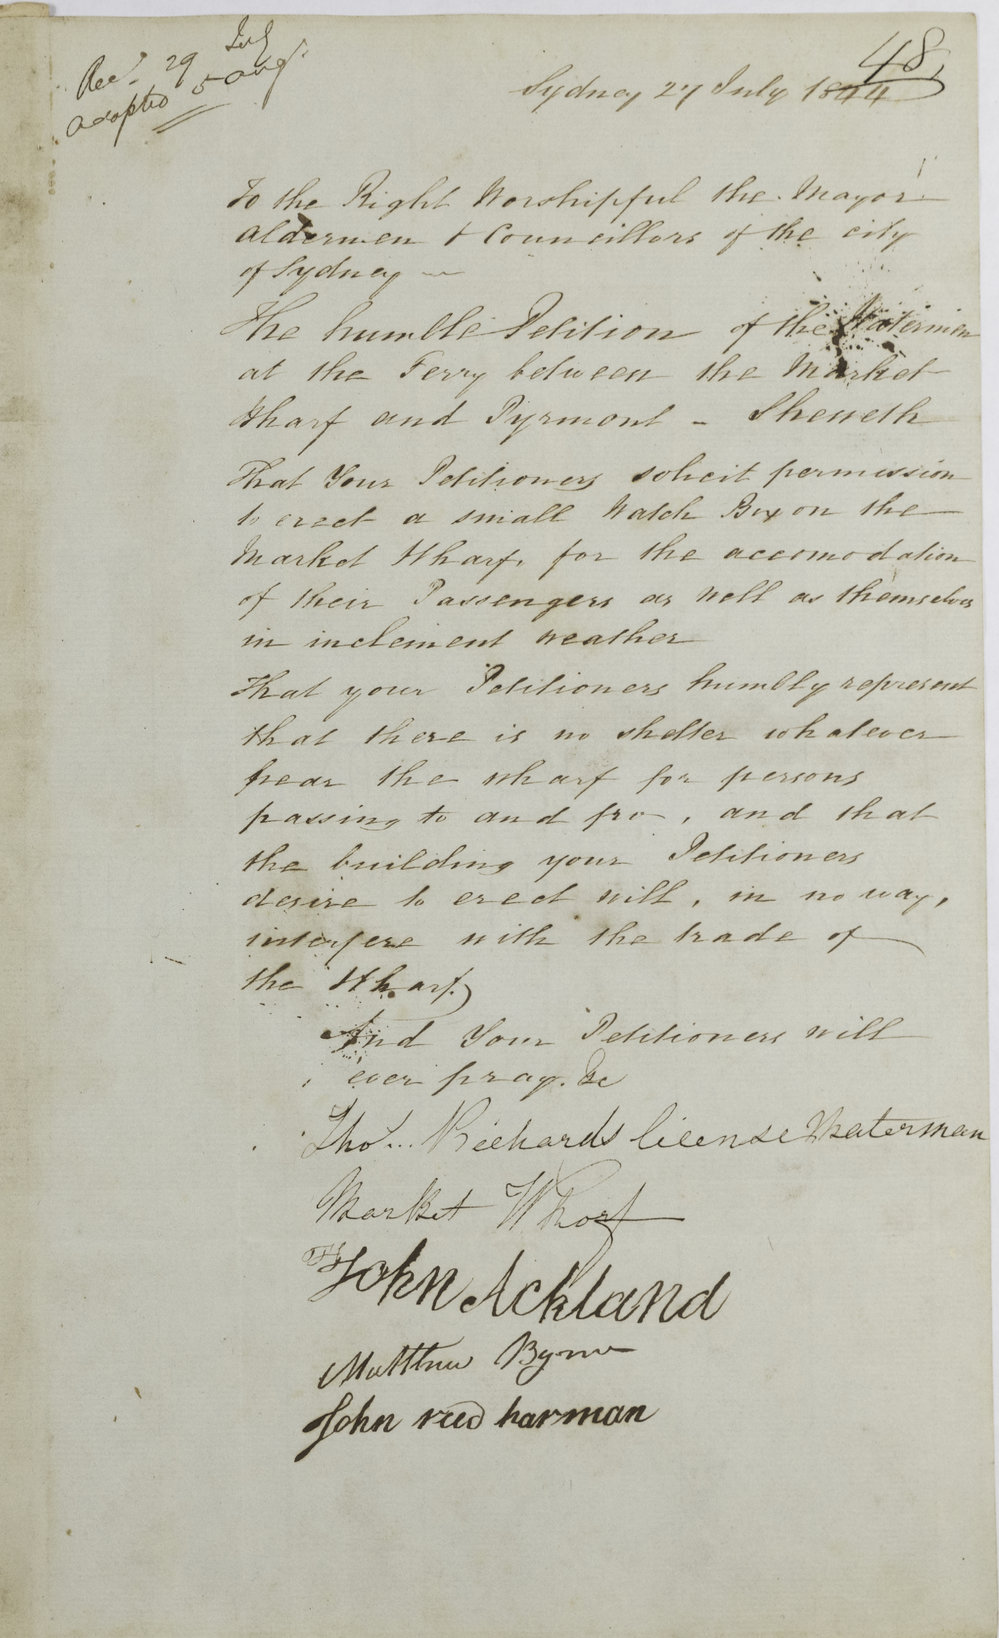 Recd. 29 July
adopted 5 Augt.
48
Sydney 27 July 1844
To the Right Worshipful the Mayor
Aldermen & Councillors of the city
of Sydney
The humble Petition of the Watermen
at the Ferry between the Market
Wharf and Pyrmont - Sheweth
That Your Petitioners solicit permission
to erect a small Watch Box on the
Market Wharf, for the accomodation
of their Passengers as well as themselves
in inclement weather
That your Petitioners humbly represent
that there is no shelter whatever
near the wharf for persons
passing to and fro, and that
the building your Petitioners
desire to erect will, in no way,
interfere with the trade of
the Wharf.
And Your Petitioners will
ever pray. &c
Thos. Richards license Waterman
Market Wharf
John Ackland
Matthew Byrne
John reed harman